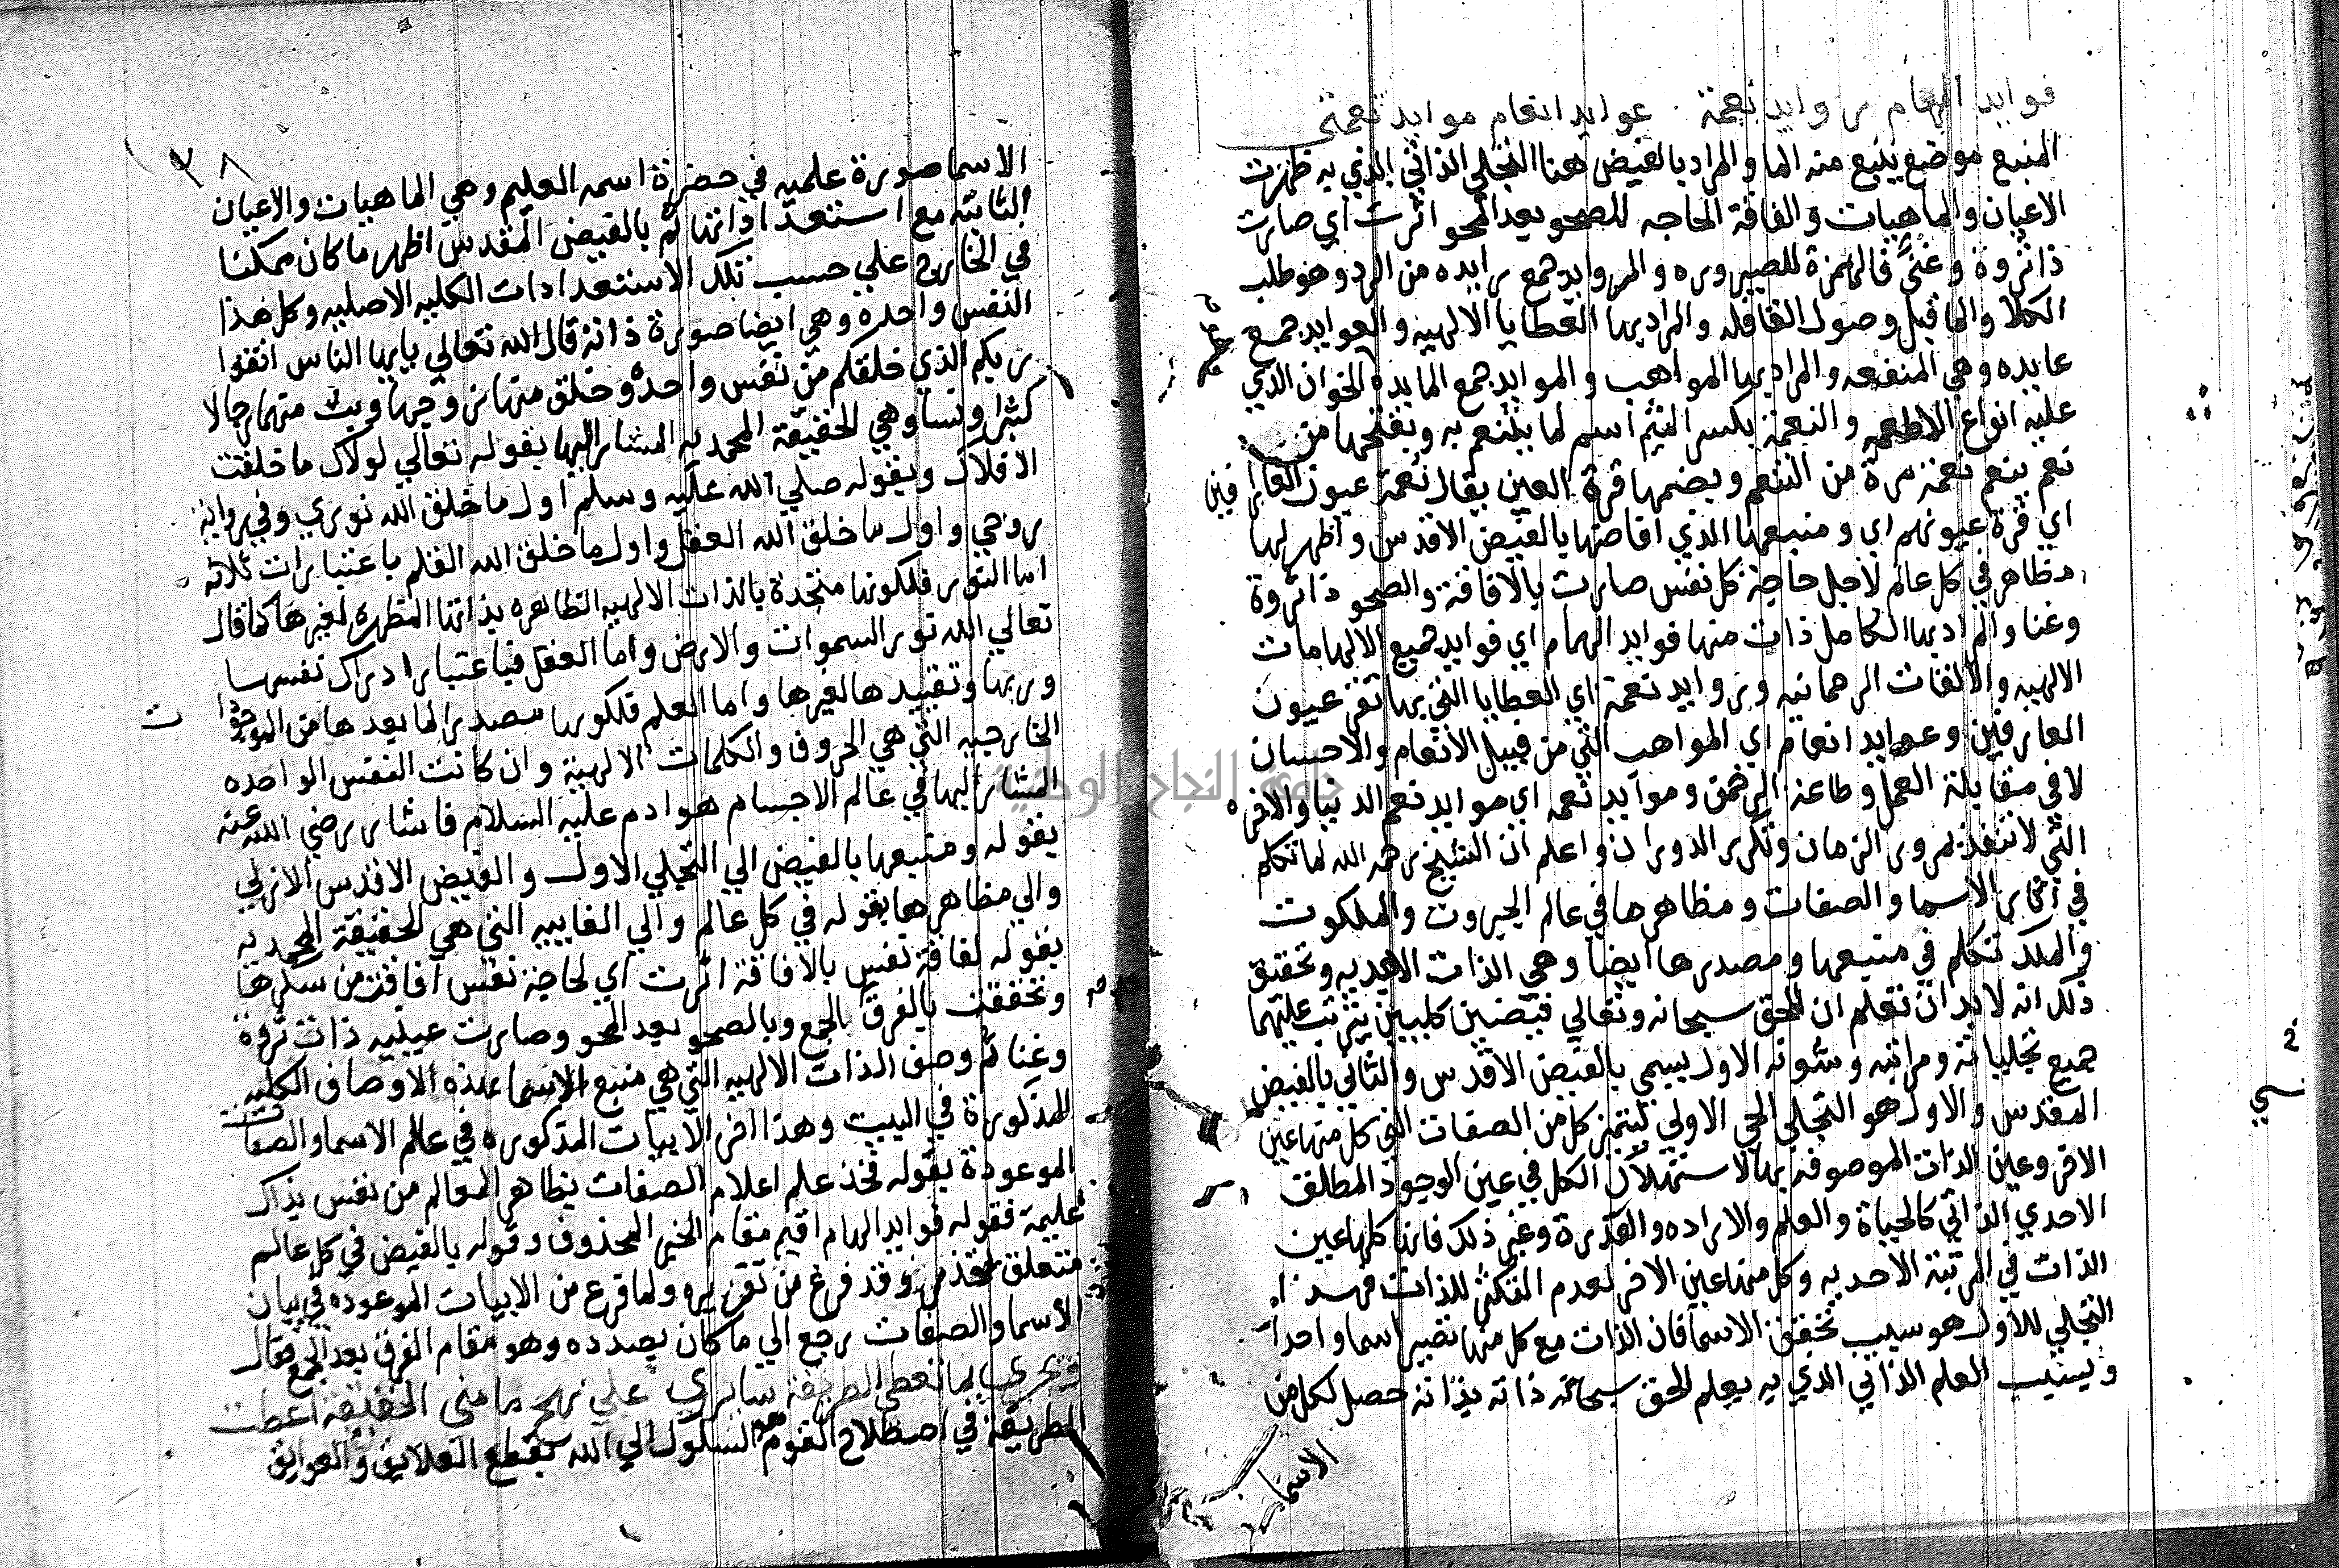 فوايد الهام روايد نعمة عوايد انعام موايد نعمتى
المنبع موضع ينبع منه الما والمراد بالفيض هنا التجلي الذاتي الذي به ظهرت
الاعيان والماهيات والفاقة الحاجه للصحو بعد المحو اثرت اي صارت
ذا ثروة وغنى فالهمزة للصيروره والروايد جمع رايده من الرود وهو طلب
الكلأ والما قبل وصول القافله والمراد بها العطايا الالهيه والعوايد جمع
عايده وهي المنفعه والمراد بها المواهب والموايد جمع المايده الخوان الذي
عليه انواع الاطعمه والنعمة بكسر اسم لما يتنعم به وبفتحها من
نعم ينعم نعمة مرة من التنعم وبضمها قرة العين يقال نعمة عيون العارفين
اي قرة عيونهم اي ومنبعها الذي افاضتها بالفيض الاقدس واظهر لها
مظاهر في كل عالم لاجل حاجة كل نفس صارت بالافاقة والصحو ذا ثروة
وغنا والمراد بها الكامل ذات منها فوايد الهام اي فوايد جميع الالهامات
الالهيه والالقات الرحمانيه وروايد نعمة اي العطايا التي بها تقر عيون
العارفين وعوايد انعام اي المواهب التي من قبيل الانعام والاحسان
لا في مقابلة العمل وطاعة الرحمن وموايد نعمه اي موايد نعم الدنيا والاخره
التي لا تنفد بمرور الزمان وتكرر الدوران واعلم ان الشيخ رحمه الله لما تكلم
في اثار الاسما والصفات ومظاهرها في عالم الجبروت والملكوت
والملك تكلم في منبعها ومصدرها ايضا وهي الذات الاحديه وتحقيق
ذلك انه لا بد ان تعلم ان للحق سبحانه وتعالي فيضين كليين يترتب عليهما
جميع تجلياته ومراتبه وشئونه الاول يسمي بالفيض الاقدس والثاني بالفيض
المقدس والاول هو التجلي الاولي ليتميز كل من الصفات التي كل منها عين
الاخر وعين الذات الموصوفه بها لاستهلاك الكل في عين الوجود المطلق
الاحدي الذاتي كالحياة والعلم والاراده والقدرة وغير ذلك فانها كلها عين
الذات في المرتبة الاحديه وكل منها عين الاخر لعدم التكثر للذات فهذا
التجلي الاول هو سبب تحقق الاسما فان الذات مع كل منها تصير اسما واحدا
وبسبب العلم الذاتي الذي به يعلم الحق سبحانه ذاته بذاته حصل لكل من
الاسما
٣٨
الاسما صورة علميه في حضرة اسمه العليم وهي الماهيات والاعيان
الثابته مع استعداداتها ثم بالفيض المقدس اظهر ما كان ممكنا
في الخارج علي حسب تلك الاستعدادات الكليه الاصليه وكل هذا
النفس واحده وهي ايضا صورة ذاته قال الله تعالي يايها الناس اتقوا
ربكم الذي خلقكم من نفس واحدة وخلق منها زوجها وبث منهما رجالا
كثيرا ونسا وهي الحقيقة المحمديه المشار اليها بقوله تعالي لولاك ما خلقت
الافلاك وبقوله صلي الله عليه وسلم اول ما خلق الله نوري وفي رواية
روحي واول ما خلق الله العقل واول ما خلق الله القلم باعتبارات ثلاثه
اما النور فلكونها متحدة بالذات الالهيه الظاهره بذاتها المظهره لغيرها كما قال
تعالي الله نور السموات والارض واما العقل فباعتبار ادراك نفسها
وربها وتقييدها لغيرها واما القلم فلكونها مصدرا لما بعدها من الموجودات
الخارجيه التي هي الحروف والكلمات الالهية وان كانت النفس الواحده
المشار اليها في عالم الاجسام هو ادم عليه السلام فاشار رضي الله عنه
بقوله ومنبعها بالفيض الي التجلي الاول والفيض الاقدس الازلي
والي مظاهرها بقوله في كل عالم والي الغاييه التي هي الحقيقة المحمديه
بقوله لفاقة نفس بالافاقة اثرت اي لحاجة نفس افاقت من سكرها
وتحققت بالفرق بالجمع وبالصحو بعد المحو وصارت عينيه ذات ثروة
وغنا ثم وصف الذات الالهيه التي هي منبع الاسما بهذه الاوصاف الكليه
المذكورة في البيت وهذا اخر الابيات المذكوره في عالم الاسما والصفات
الموعودة بقوله فخذ علم اعلام الصفات بظاهر المعالم من نفس بذاك
عليمة فقوله فوايد الهام اقيم مقام الخبر المحذوف وقوله بالفيض في كل عالم
متعلق وقد فرغ من تقريره ولما فرغ من الابيات الموعوده في بيان
الاسما والصفات رجع الي ما كان بصدده وهو مقام الفرق بعد الجمع فقال
ويجري بما تعطي الطريقة سايري علي نهج ما مني الحقيقة اعطت
الطريقة في اصطلاح القوم هو السلوك الي الله بقطع العلايق والعوايق
جامعة النجاح الوطنية